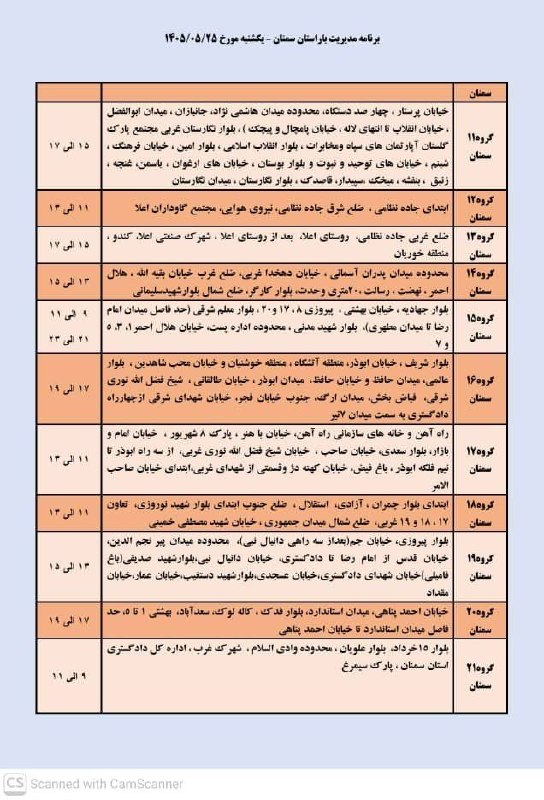 برنامه مدیریت بار استان سمنان - یکشنبه مورخ ۱۴۰۵/۰۵/۲۵
سمنان
گروه۱۱ سمنان
خیابان پرستار ، چهار صد دستگاه، محدوده میدان هاشمی نژاد، جانبازان ، میدان ابوالفضل
، خیابان انقلاب تا انتهای لاله ، خیابان پامچال و پیچک ) ، بلوار نگارستان غربی مجتمع پارک
گلستان آپارتمان های سپاه ومخابرات ، بلوار انقلاب اسلامی ، بلوار امین ، خیابان فرهنگ ،
شبنم ، خیابان های توحید و نبوت و بلوار بوستان ، خیابان های ارغوان ، یاسمن، غنچه ،
زنبق ، بنفشه ، میخک ،سپیدار، قاصدک ، بلوار نگارستان ، میدان نگارستان
۱۵ الی ۱۷
گروه۱۲ سمنان
ابتدای جاده نظامی ، ضلع شرق جاده نظامی، نیروی هوایی، مجتمع گاوداران اعلا
۱۱ الی ۱۳
گروه۱۳ سمنان
ضلع غربی جاده نظامی، روستای اعلا، بعد از روستای اعلا ، شهرک صنعتی اعلا، کندو ،
منطقه خوریان
۱۵ الی ۱۷
گروه۱۴ سمنان
محدوده میدان پدران آسمانی ، خیابان دهخدا غربی، ضلع غرب خیابان بقیه الله ، هلال
احمر ، نهضت ، رسالت ، ۲۰متری وحدت، بلوار کارگر، ضلع شمال بلوارشهیدسلیمانی
۱۳ الی ۱۵
گروه۱۵ سمنان
بلوار جهادیه ، خیابان بهشتی ، پیروزی ۸ ، ۱۷ و ۲۰ ، بلوار معلم شرقی (حد فاصل میدان امام
رضا تا میدان مطهری)، بلوار شهید مدنی ، محدوده اداره پست، خیابان هلال احمر ۱، ۳، ۵
و ۷
۹ الی ۱۱
۲۱ الی ۲۳
گروه۱۶ سمنان
بلوار شریف ، خیابان ابوذر، منطقه آتشگاه ، منطقه خوشنیان و خیابان محب شاهدین ، بلوار
عالمی، میدان حافظ و خیابان حافظ، میدان ابوذر ، خیابان طالقانی ، شیخ فضل الله نوری
شرقی، فیاض بخش، میدان ارگ، جنوب خیابان فجر، خیابان شهدای شرقی ازچهارراه
دادگستری به سمت میدان ۷تیر
۱۷ الی ۱۹
گروه۱۷ سمنان
راه آهن و خانه های سازمانی راه آهن، خیابان با هنر ، پارک ۸ شهریور ، خیابان امام و
بازار، بلوار سعدی، خیابان صاحب ، خیابان شیخ فضل الله نوری غربی، از سه راه ابوذر تا
نیم فلکه ابوذر ، باغ فیض، خیابان کهنه دژ وقسمتی از شهدای غربی،ابتدای خیابان صاحب
الامر
۱۱ الی ۱۳
گروه۱۸ سمنان
ابتدای بلوار چمران ، آزادی، استقلال ، ضلع جنوب ابتدای بلوار شهید نوروزی، تعاون
۱۷ ، ۱۸ و ۱۹ غربی، ضلع شمال میدان جمهوری ، خیابان شهید مصطفی خمینی
۱۱ الی ۱۳
گروه۱۹ سمنان
بلوار پیروزی، خیابان جم(بعداز سه راهی دانیال نبی)، محدوده میدان پیر نجم الدین،
خیابان قدس از امام رضا تا دادگستری، خیابان دانیال نبی،بلوارشهید صدیقی(باغ
فامیلی)خیابان شهدای دادگستری،خیابان عسجدی،بلوارشهید دستغیب،خیابان عمار،خیابان
مقداد
۱۳ الی ۱۵
گروه۲۰ سمنان
خیابان احمد پناهی، میدان استاندارد، بلوار فدک ، کاله لوک، سعدآباد، بهشتی ۱ تا ۵، حد
فاصل میدان استاندارد تا خیابان احمد پناهی
۱۷ الی ۱۹
گروه۲۱ سمنان
بلوار ۱۵خرداد، بلوار علویان ، محدوده وادی السلام ، شهرک غرب ، اداره کل دادگستری
استان سمنان ، پارک سیمرغ
۹ الی ۱۱
CS Scanned with CamScanner